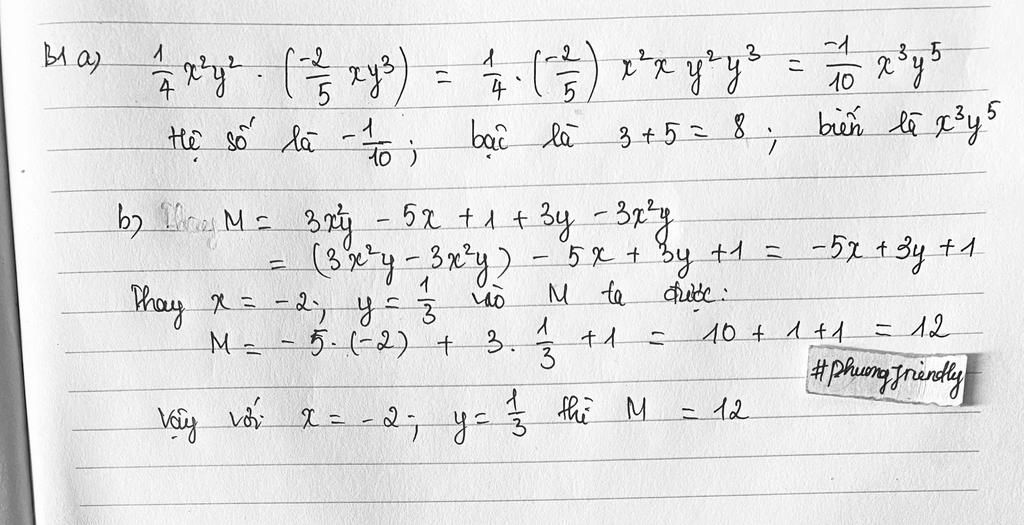 B1 a) 1/4 x²y² · (-2/5 xy³) = 1/4 · (-2/5) x²x y²y³ = -1/10 x³y⁵
Hệ số là -1/10 ; bậc là 3 + 5 = 8 ; biến là x³y⁵
b) Thay M = 3x²y - 5x + 1 + 3y - 3x²y
= (3x²y - 3x²y) - 5x + 3y + 1 = -5x + 3y + 1
Thay x = -2 ; y = 1/3 vào M ta được :
M = -5 · (-2) + 3 . 1/3 + 1 = 10 + 1 + 1 = 12
#phuongfriendly
Vậy với x = -2 ; y = 1/3 thì M = 12